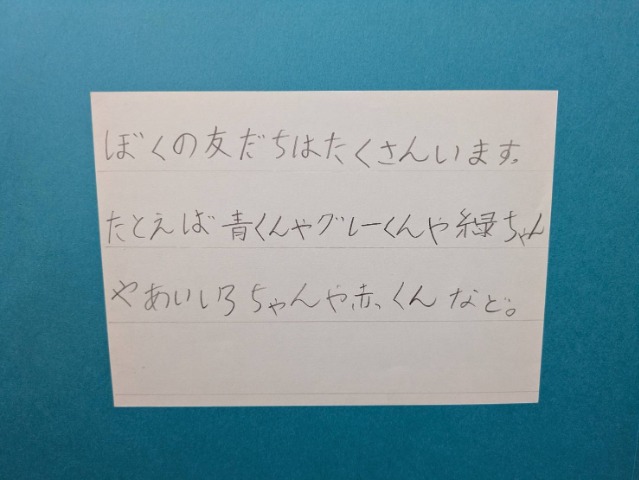 ぼくの友だちはたくさんいます。
たとえば青くんやグレーくんや緑ちゃん
やあいいろちゃんや赤くんなど。